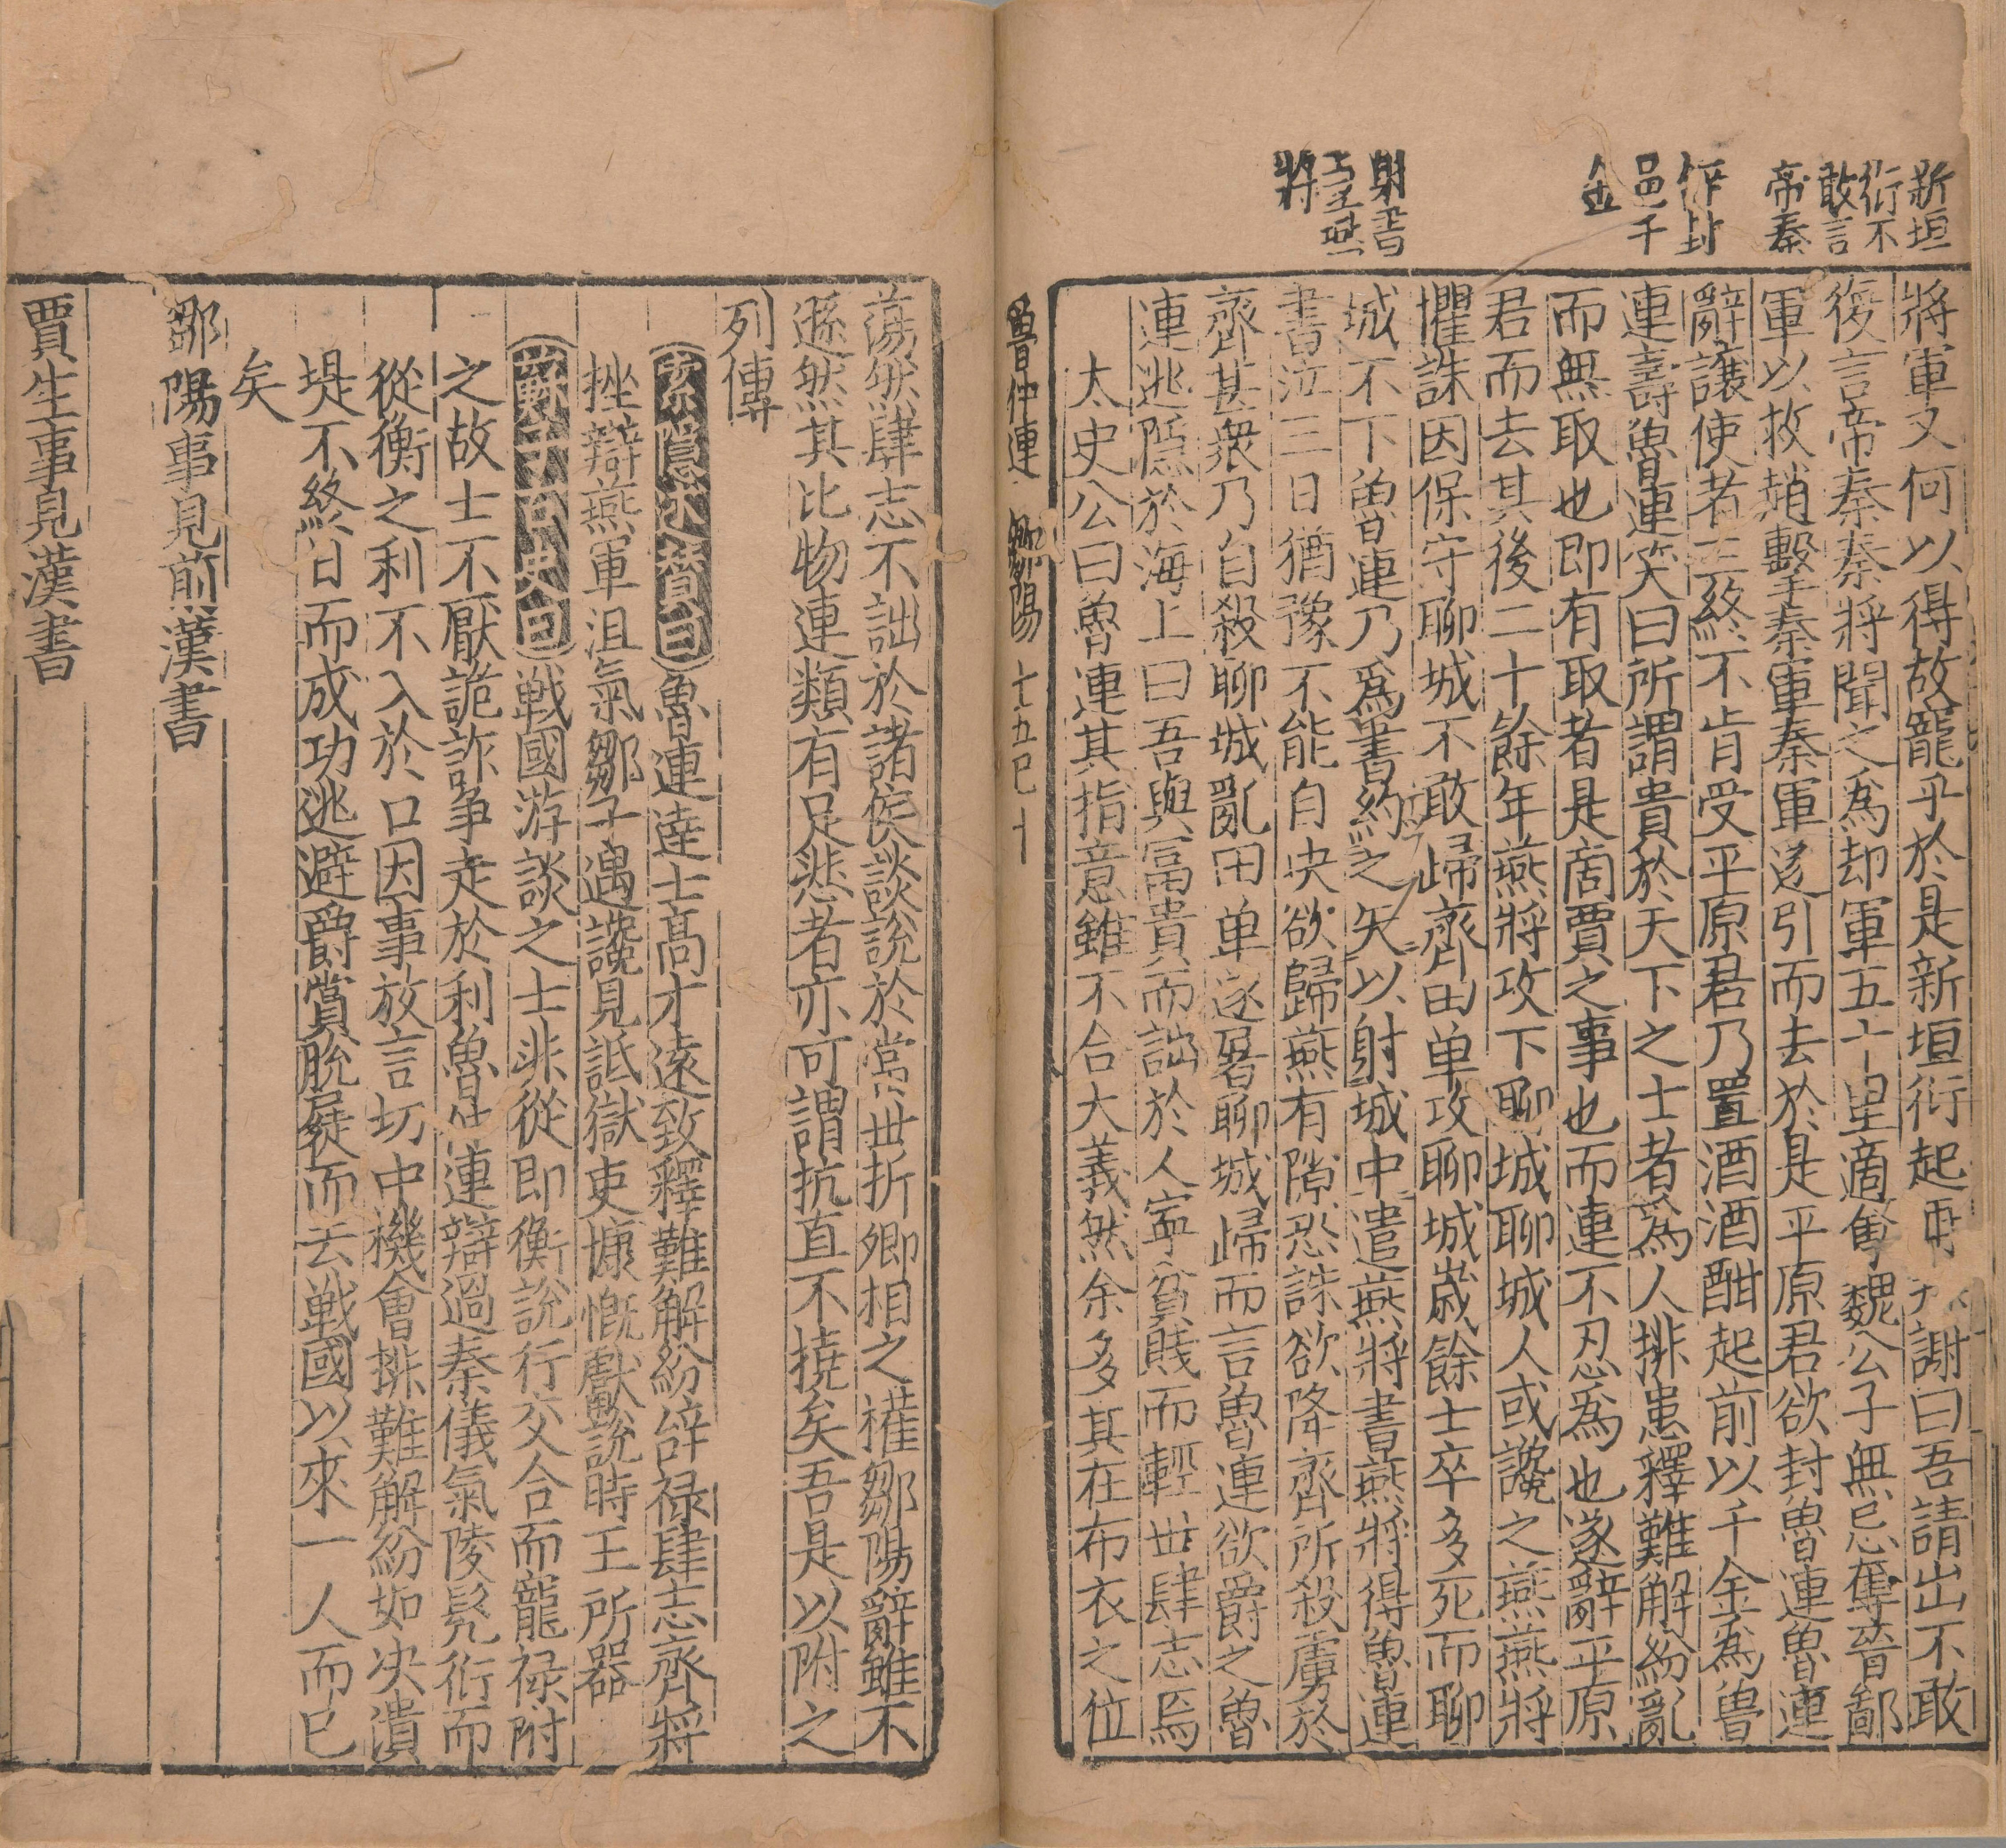 新垣
衍不
敢言
帝秦
却封
邑千
金
射書
與燕
將
將軍又何以得故寵乎於是新垣衍起再拜謝曰吾請出不敢
復言帝秦秦將聞之爲却軍五十里適會魏公子無忌奪晉鄙
軍以救趙擊秦軍秦軍遂引而去於是平原君欲封魯連魯連
辭讓使者三終不肯受平原君乃置酒酒酣起前以千金爲魯
連壽魯連笑曰所謂貴於天下之士者爲人排患釋難解紛亂
而無取也即有取者是商賈之事也而連不忍爲也遂辭平原
君而去其後二十餘年燕將攻下聊城聊城人或讒之燕燕將
懼誅因保守聊城不敢歸齊田单攻聊城歲餘士卒多死而聊
城不下魯連乃爲書約之矢以射城中遣燕將書燕將得魯連
書泣三日猶豫不能自决欲歸燕有隙恐誅欲降齊所殺虜於
齊甚衆乃自殺聊城亂田单遂屠聊城歸而言魯連欲爵之魯
連逃隱於海上曰吾與富貴而詘於人寧貧賤而輕世肆志焉
太史公曰魯連其指意雖不合大義然余多其在布衣之位
魯仲連 鄒陽 十五巳 十
蕩然肆志不詘於諸侯談說於當世折卿相之權鄒陽辭雖不
遜然其比物連類有足悲者亦可謂抗直不撓矣吾是以附之
列傳
索隱述贊曰魯連達士高才遠致釋難解紛辭禄肆志齊將
挫辯燕軍沮氣鄒子遇讒見詆獄吏慷慨獻說時王所器
蘇子古史曰戰國游談之士非從即衡說行交合而寵禄附
之故士不厭詭詐争走於利魯仲連辯過秦儀氣陵髠衍而
從衡之利不入於口因事放言切中機會排難解紛如决潰
堤不終日而成功逃避爵賞脱屣而去戰國以來一人而已
矣
鄒陽事見前漢書
賈生事見漢書